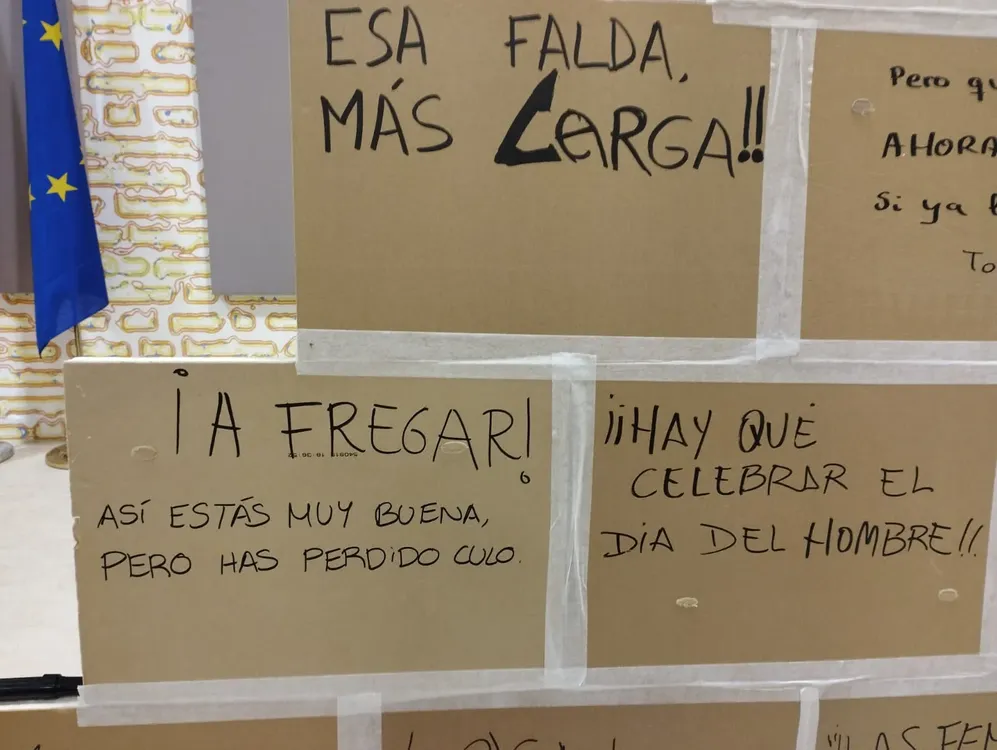 ESA FALDA,
MÁS LARGA!!
Pero
AHORA
Si ya
¡A FREGAR!
ASÍ ESTÁS MUY BUENA,
PERO HAS PERDIDO CULO.
¡¡HAY QUE
CELEBRAR EL
DÍA DEL HOMBRE!!
¡¡¡LAS